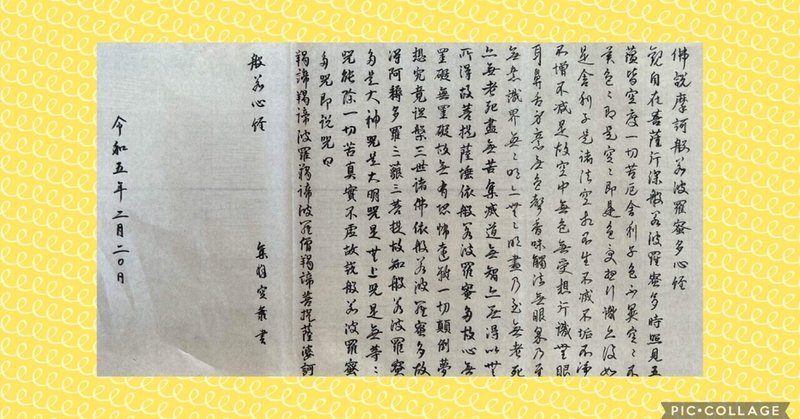 佛説摩訶般若波羅蜜多心経
観自在菩薩行深般若波羅蜜多時照見五
蘊皆空度一切苦厄舎利子色不異空々不
異色々即是空々即是色受想行識亦復如
是舎利子是諸法空相不生不滅不垢不浄
不増不減是故空中無色無受想行識無眼
耳鼻舌身意無色聲香味觸法無眼界乃至
無意識界無々明亦無々明盡乃至無老死
亦無老死盡無苦集滅道無智亦無得以無
所得故菩提薩埵依般若波羅蜜多故心無
罣礙無罣礙故無有恐怖遠離一切顛倒夢
想究竟涅槃三世諸佛依般若波羅蜜多故
得阿耨多羅三藐三菩提故知般若波羅蜜
多是大神呪是大明呪是無上呪是無等々
呪能除一切苦真實不虚故説般若波羅蜜
多呪即説呪曰
羯諦羯諦波羅羯諦波羅僧羯諦菩提薩婆訶
般若心経
令和五年二月二〇日
PIC•COLLAGE